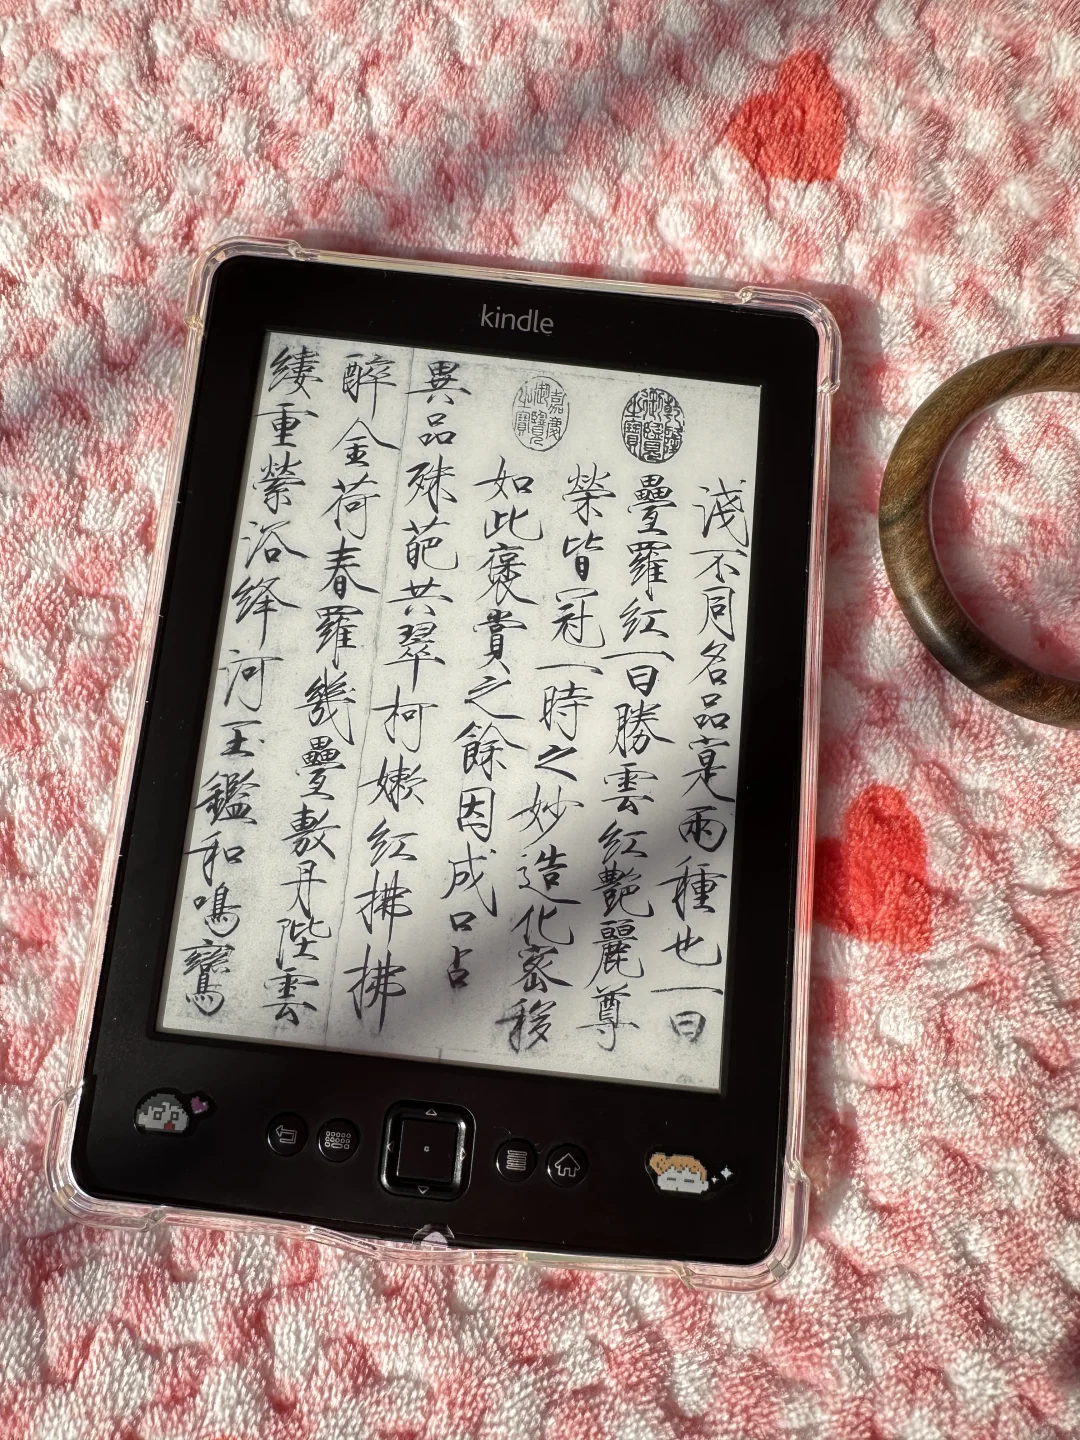 kindle
乾隆御覽之寶
嘉慶御覽之寶
淺不同名品寔兩種也一曰
疊羅紅一曰勝雲紅艷麗尊
榮皆冠一時之妙造化密移
如此褒賞之餘因成口占
異品殊葩共翠柯嫩紅拂拂
醉金荷春羅幾疊敷丹陛雲
縷重縈浴絳河玉鑑和鳴鸞